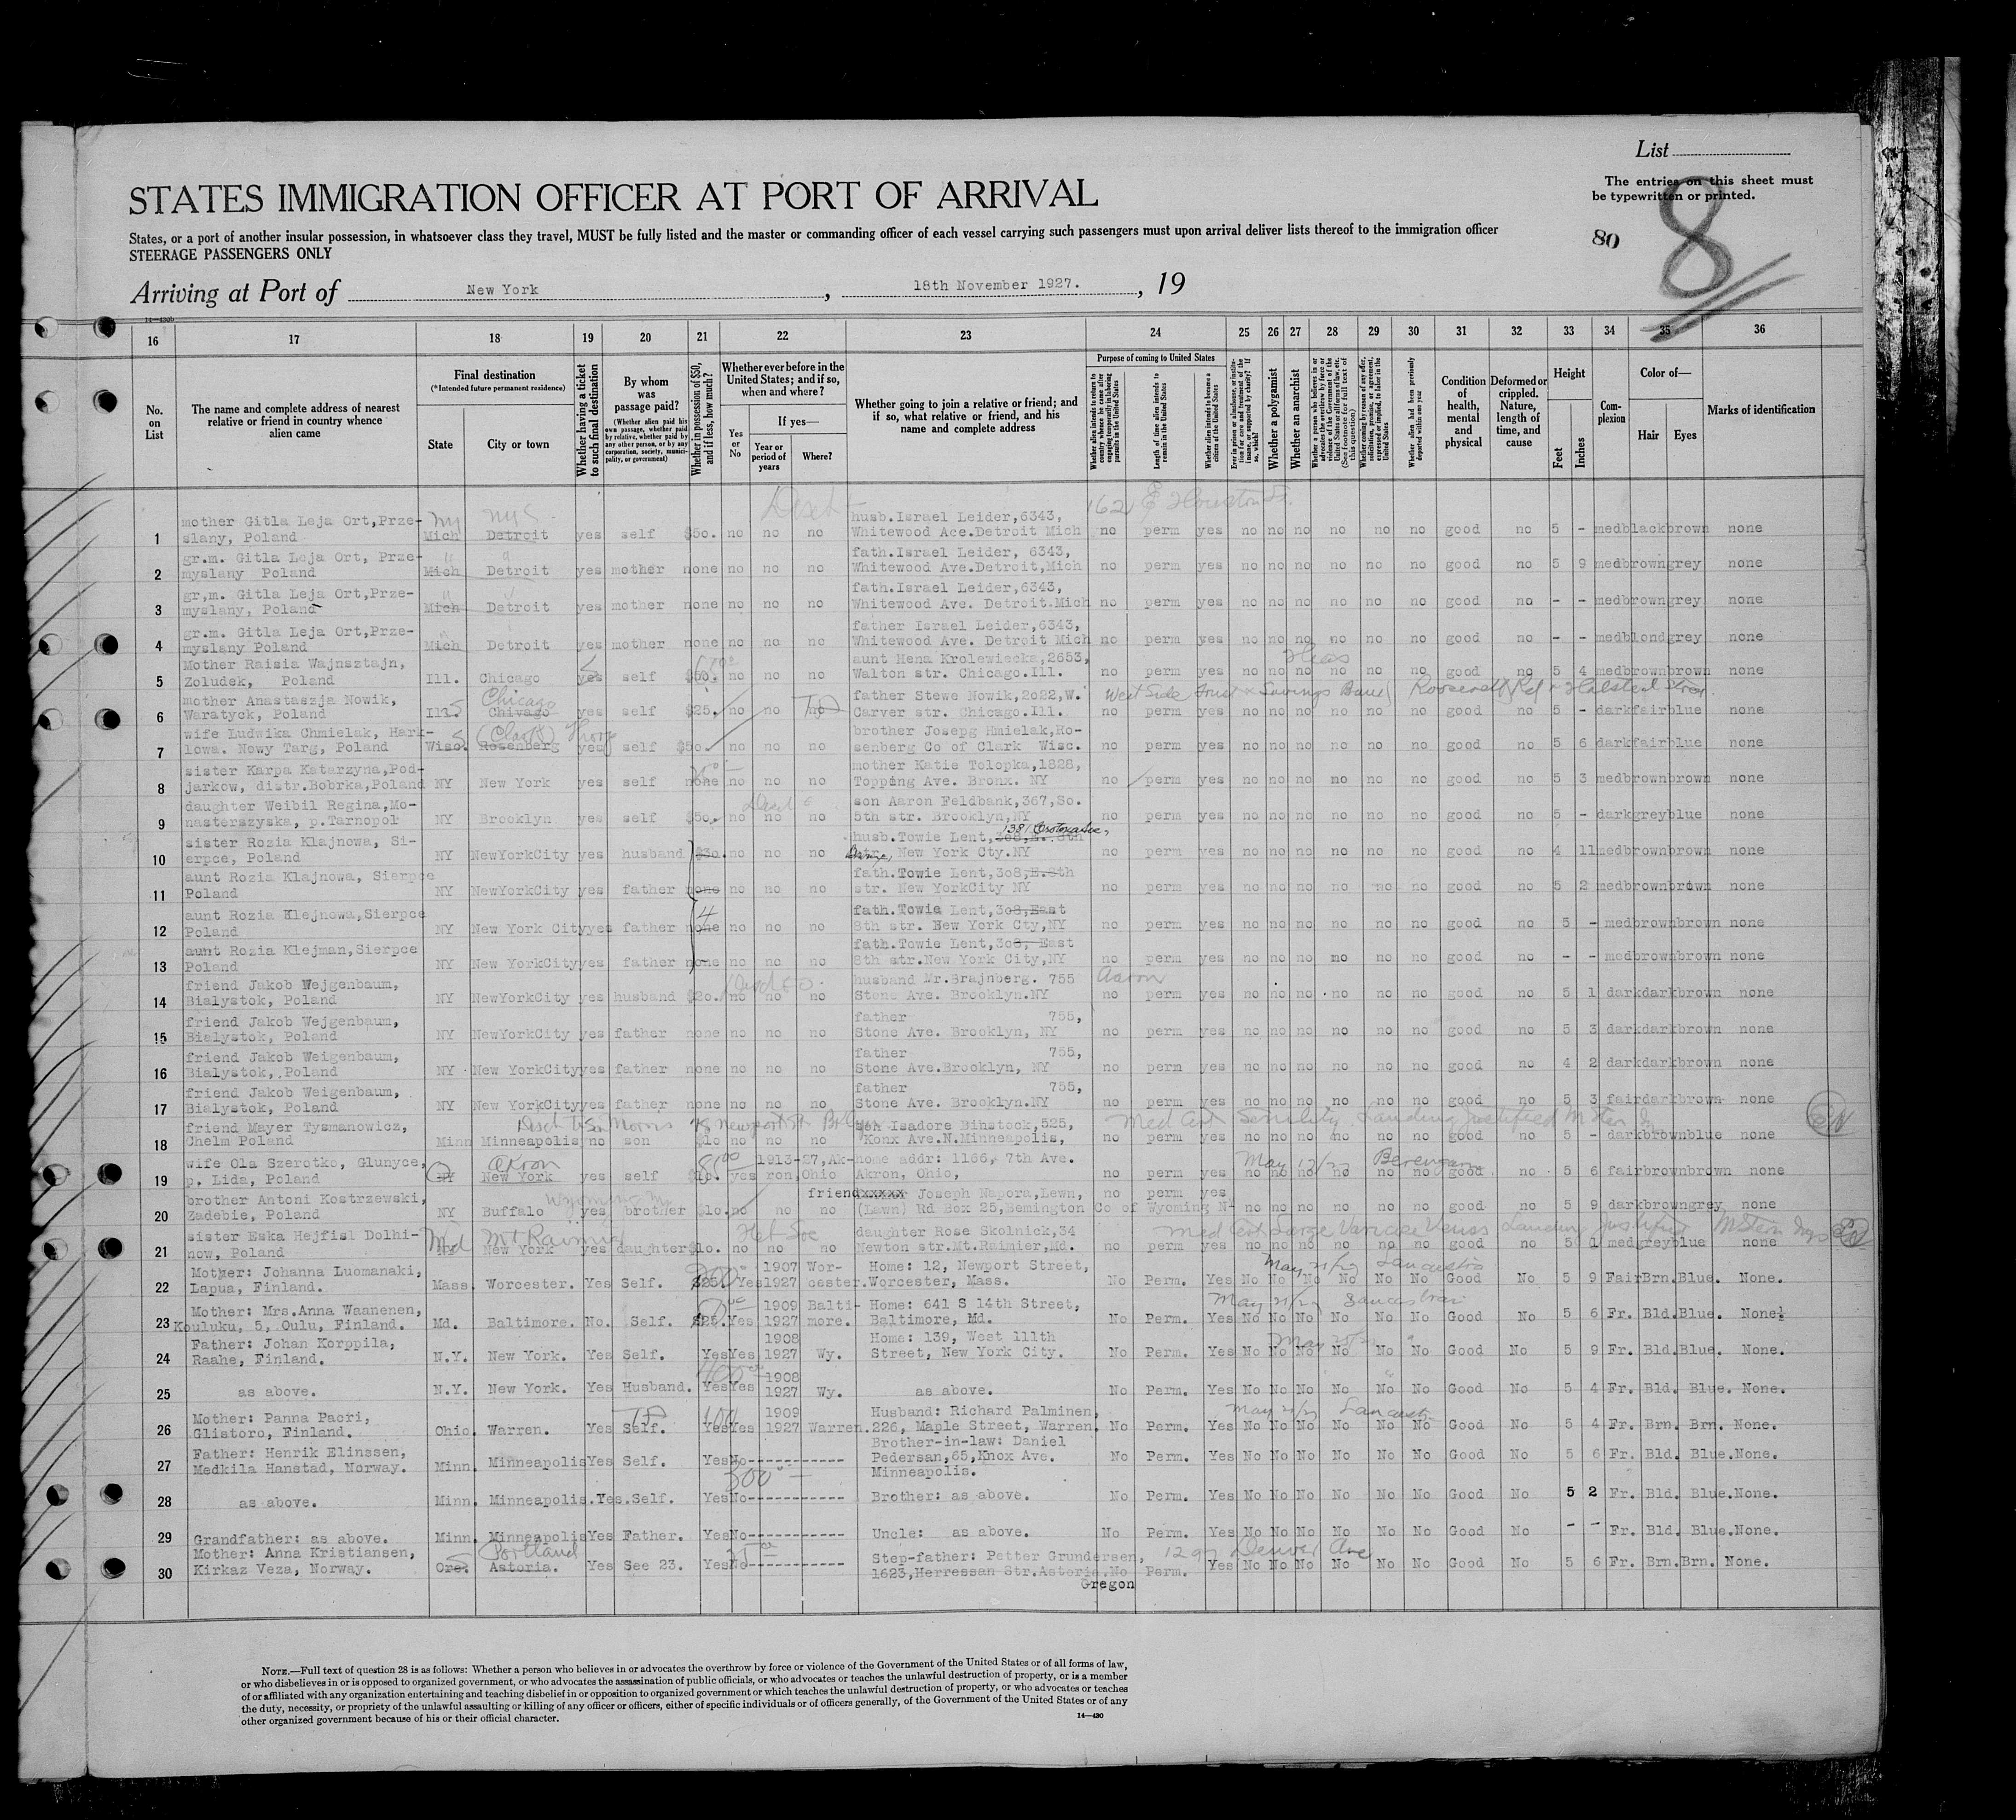 List
The entries on this sheet must
be typewritten or printed.
8
80
STATES IMMIGRATION OFFICER AT PORT OF ARRIVAL
States, or a port of another insular possession, in whatsoever class they travel, MUST be fully listed and the master or commanding officer of each vessel carrying such passengers must upon arrival deliver lists thereof to the immigration officer
STEERAGE PASSENGERS ONLY
Arriving at Port of New York, 18th November 1927. , 19
14—430b
16 17 18 19 20 21 22 23 24 25 26 27 28 29 30 31 32 33 34 35 36
No. on List
The name and complete address of nearest relative or friend in country whence alien came
Final destination
(*Intended future permanent residence)
State
City or town
Whether having a ticket to such final destination
By whom was passage paid?
(Whether alien paid his own passage, whether paid by relative, whether paid by any other person, or by any corporation, society, municipality, or government)
Whether in possession of $50, and if less, how much?
Whether ever before in the United States; and if so, when and where?
Yes or No
If yes—
Year or period of years
Where?
Whether going to join a relative or friend; and if so, what relative or friend, and his name and complete address
Purpose of coming to United States
Whether alien intends to return to country whence he came after engaging temporarily in laboring pursuits in the United States
Length of time alien intends to remain in the United States
Whether alien intends to become a citizen of the United States
Whether a polygamist
Whether an anarchist
Whether alien had been previously deported within one year
Condition of health, mental and physical
Deformed or crippled. Nature, length of time, and cause
Height
Feet
Inches
Complexion
Color of—
Hair
Eyes
Marks of identification
162 E Houston St.
mother Gitla Leja Ort,Prze- husb.Israel Leider,6343,
1 slany, Poland Mich Detroit yes self $50. no no no Whitewood Ace.Detroit Mich no perm yes no no no no no no good no 5 - med black brown none
gr.m. Gitla Leja Ort, Prze- fath.Israel Leider, 6343,
2 myslany Poland Mich Detroit yes mother none no no no Whitewood Ave.Detroit,Mich no perm yes no no no no no no good no 5 9 med brown grey none
gr,m. Gitla Leja Ort,Prze- fath.Israel Leider,6343,
3 myslany, Poland Mich Detroit yes mother none no no no Whitewood Ave. Detroit.Mich no perm yes no no no no no no good no - - med brown grey none
gr.m. Gitla Leja Ort,Prze- father Israel Leider,6343,
4 myslany Poland Mich Detroit yes mother none no no no Whitewood Ave. Detroit Mich no perm yes no no no no no no good no - - med blond grey none
Mother Raisia Wajnsztajn, aunt Hena Krolewiecka,2653,
5 Zoludek, Poland Ill. Chicago yes self $50. no no no Walton str. Chicago.Ill. no perm yes no no no no no no good no 5 4 med brown brown none
mother Anastaszja Nowik, Chicago father Stewe Nowik,2022,W. West Side Trust & Savings Bank Roosevelt Rd & Halsted Street
6 Waratyck, Poland Ill. Chivago yes self $25. no no no Carver str. Chicago.Ill. no perm yes no no no no no no good no 5 - dark fair blue none
wife Ludwika Chmielak, Hark- (Clark) brother Josepg Hmielak,Ro-
7 lowa. Nowy Targ, Poland Wisc. Rosenberg yes self $50. no no no senberg Co of Clark Wisc. no perm yes no no no no no no good no 5 6 dark fair blue none
sister Karpa Katarzyna,Pod- mother Katie Tolopka,1828,
8 jarkow, distr.Bobrka,Poland NY New York yes self none no no no Topping Ave. Bronx. NY no perm yes no no no no no no good no 5 3 med brown brown none
daughter Weibil Regina,Mo- son Aaron Feldbank,367,So.
9 nasterszyska, p.Tarnopol NY Brooklyn yes self $50. no no no 5th str. Brooklyn,NY no perm yes no no no no no no good no 5 - dark grey blue none
sister Rozia Klajnowa, Si- husb.Towie Lent,308,E. 8th 1381 Crotona Ave,
10 erpce, Poland NY NewYorkCity yes husband $30. no no no str, New York Cty.NY no perm yes no no no no no no good no 4 11 med brown brown none
aunt Rozia Klajnowa, Sierpce fath.Towie Lent,308,E.8th
11 Poland NY NewYorkCity yes father none no no no str. New YorkCity NY no perm yes no no no no no no good no 5 2 med brown brown none
aunt Rozia Klejnowa,Sierpce fath.Towie Lent,308,East
12 Poland NY New York City yes father none no no no 8th str. New York Cty,NY no perm yes no no no no no no good no 5 - med brown brown none
aunt Rozia Klejman,Sierpce fath.Towie Lent,308, East
13 Poland NY New YorkCity yes father none no no no 8th str.New York City,NY no perm yes no no no no no no good no - - med brown brown none
friend Jakob Wejgenbaum, husband Mr.Brajnberg. 755 Aaron
14 Bialystok, Poland NY NewYorkCity yes husband $20. no no no Stone Ave. Brooklyn.NY no perm yes no no no no no no good no 5 1 dark dark brown none
friend Jakob Wejgenbaum, father 755,
15 Bialystok, Poland NY NewYorkCity yes father none no no no Stone Ave. Brooklyn, NY no perm yes no no no no no no good no 5 3 dark dark brown none
friend Jakob Weigenbaum, father 755,
16 Bialystok,.Poland NY New YorkCity yes father none no no no Stone Ave.Brooklyn, NY no perm yes no no no no no no good no 4 2 dark dark brown none
friend Jakob Weigenbaum, father 755,
17 Bialystok, Poland NY New YorkCity yes father none no no no Stone Ave. Brooklyn.NY no perm yes no no no no no no good no 5 3 fair dark brown none
friend Mayer Tysmanowicz, son Isadore Binstock,525, Med Cert Senility Landing Justified M Stern
18 Chelm Poland Minn Minneapolis no son $10 no no no Konx Ave.N.Minneapolis, no perm yes no no no no no no good no 5 - dark brown blue none
wife Ola Szerotko, Glunyce, Akron 1913-27,Ak- home addr: 1166, 7th Ave. May 12/27 Berengaria
19 p. Lida, Poland NY New York yes self $10. yes ron,Ohio Akron, Ohio, no perm yes no no no no no no good no 5 6 fair brown brown none
brother Antoni Kostrzewski, Wyoming friend xxxxx Joseph Napora,Lewn, no perm yes
20 Zadebie, Poland NY Buffalo yes brother $10. no no no (Lawn) Rd Box 25,Bemington Co of Wyoming N- no no no no no no good no 5 9 dark brown grey none
sister Eska Hejfisl Dolhi- Md Mt Rainier daughter Rose Skolnick,34 Med Cert Large Varicose Veins Landing justified M Stern
21 now, Poland NY New York yes daughter $10. no no no Newton str.Mt.Raimier,Md. no perm yes no no no no no no good no 5 1 med grey blue none
Mother: Johanna Luomanaki, 200 1907 Wor- Home: 12, Newport Street, May 21/27 Lancastria
22 Lapua, Finland. Mass. Worcester. Yes Self. $25. Yes 1927 cester. Worcester, Mass. No Perm. Yes No No No No No No Good No 5 9 Fair Brn. Blue. None.
Mother: Mrs.Anna Waanenen, 1909 Balti- Home: 641 S 14th Street, May 21/27 Lancastria
23 Kouluku, 5, Oulu, Finland. Md. Baltimore. No. Self. $25. Yes 1927 more. Baltimore, Md. No Perm. Yes No No No No No No Good No 5 6 Fr. Bld. Blue. None.
Father: Johan Korppila, 1908 Home: 139, West 111th
24 Raahe, Finland. N.Y. New York. Yes Self. Yes Yes 1927 Wy. Street, New York City. No Perm. Yes No No No No No No Good No 5 9 Fr. Bld. Blue. None.
400 1908
25 as above. N.Y. New York. Yes Husband. Yes Yes 1927 Wy. as above. No Perm. Yes No No No No No No Good No 5 4 Fr. Bld. Blue. None.
Mother: Panna Pacri, 100 1909 Husband: Richard Palminen, May 21/27 Lancastria
26 Glistoro, Finland. Ohio. Warren. Yes Self. Yes Yes 1927 Warren. 226, Maple Street, Warren. No Perm. Yes No No No No No No Good No 5 4 Fr. Brn. Brn. None.
Father: Henrik Elinssen, Brother-in-law: Daniel
27 Medkila Hanstad, Norway. Minn. Minneapolis Yes Self. Yes No----------- Pedersan,65,Knox Ave. No Perm. Yes No No No No No No Good No 5 6 Fr. Bld. Blue. None.
500 Minneapolis.
28 as above. Minn. Minneapolis. Yes. Self. Yes No----------- Brother: as above. No Perm. Yes No No No No No No Good No 5 2 Fr. Bld. Blue. None.
29 Grandfather: as above. Minn. Minneapolis Yes Father. Yes No----------- Uncle: as above. No Perm. Yes No No No No No No Good No - - Fr. Bld. Blue. None.
Mother: Anna Kristiansen, Portland Step-father: Petter Grundersen, 1297 Denver Ave
30 Kirkaz Veza, Norway. Ore. Astoria. Yes See 23. Yes No----------- 1623,Herressan Str.Astoria. No Perm. Yes No No No No No No Good No 5 6 Fr. Brn. Brn. None.
Oregon
NOTE.—Full text of question 28 is as follows: Whether a person who believes in or advocates the overthrow by force or violence of the Government of the United States or of all forms of law,
or who disbelieves in or is opposed to organized government, or who advocates the assassination of public officials, or who advocates or teaches the unlawful destruction of property, or is a member
of or affiliated with any organization entertaining and teaching disbelief in or opposition to organized government or which teaches the unlawful destruction of property, or who advocates or teaches
the duty, necessity, or propriety of the unlawful assaulting or killing of any officer or officers, either of specific individuals or of officers generally, of the Government of the United States or of any
other organized government because of his or their official character.
14—430